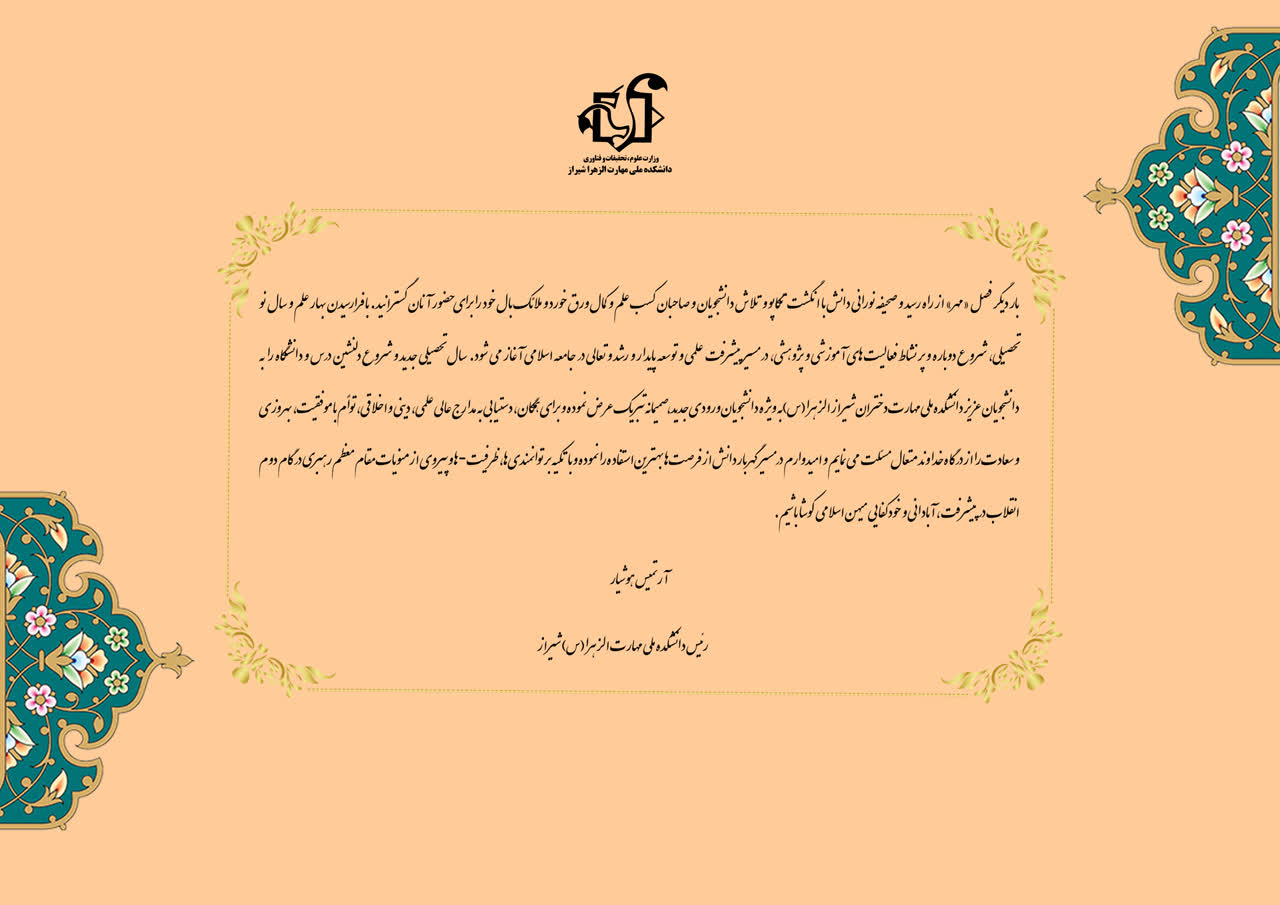 وزارت علوم، تحقیقات و فناوری
دانشکده ملی مهارت الزهرا شیراز
بار دیگر فصل «مهر» از راه رسید و صحیفه نورانی دانش با انگشت تکاپو و تلاش دانشجویان و صاحبان کسب علم و کمال ورق خورد و ملائک بال خود را برای حضور آنان گسترانید. با فرارسیدن بهار علم و سال نو
تحصیلی، شروع دوباره و پر نشاط فعالیت های آموزشی و پژوهشی، در مسیر پیشرفت علمی و توسعه پایدار و رشد و تعالی در جامعه اسلامی آغاز می شود. سال تحصیلی جدید و شروع دلنشین درس و دانشگاه را به
دانشجویان عزیز دانشکده ملی مهارت دختران شیراز الزهرا (س) به ویژه دانشجویان ورودی جدید، صمیمانه تبریک عرض نموده و برای همگان، دستیابی به مدارج عالی علمی، دینی و اخلاقی، توأم با موفقیت، بهروزی
و سعادت را از درگاه خداوند متعال مسئلت می نمایم و امیدوارم در مسیر گهربار دانش از فرصت ها بهترین استفاده را نموده و با تکیه بر توانمندی ها، ظرفیت-ها و پیروی از منویات مقام معظم رهبری در گام دوم
انقلاب در پیشرفت، آبادانی و خودکفایی میهن اسلامی کوشا باشیم.
آرتمیس هوشیار
رئیس دانشکده ملی مهارت الزهرا (س) شیراز